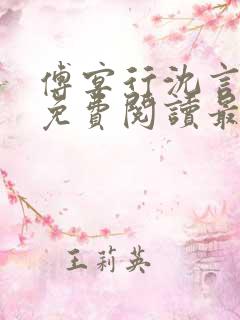 傅宴行沈言
免費閱讀最
王莉英